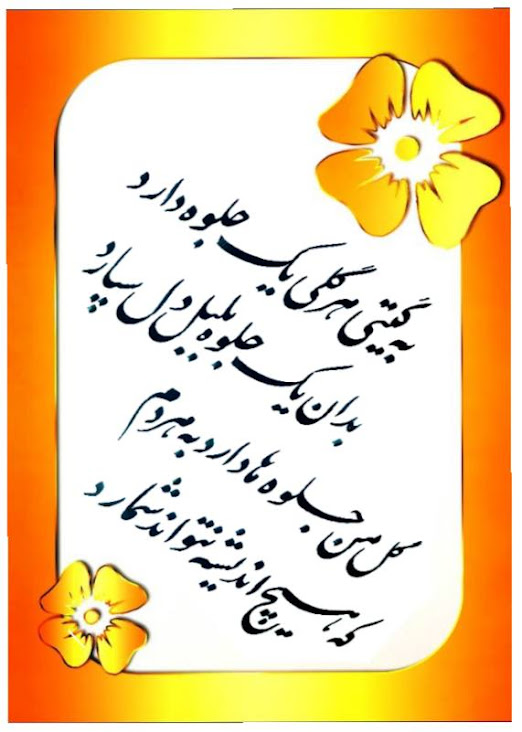 به گیتی هر گلی یک جلوه دارد
بدان یک جلوه بلبل دل سپارد
گل من جلوه ها دارد به هر دم
که هیچ اندیشه نتواند شمارد